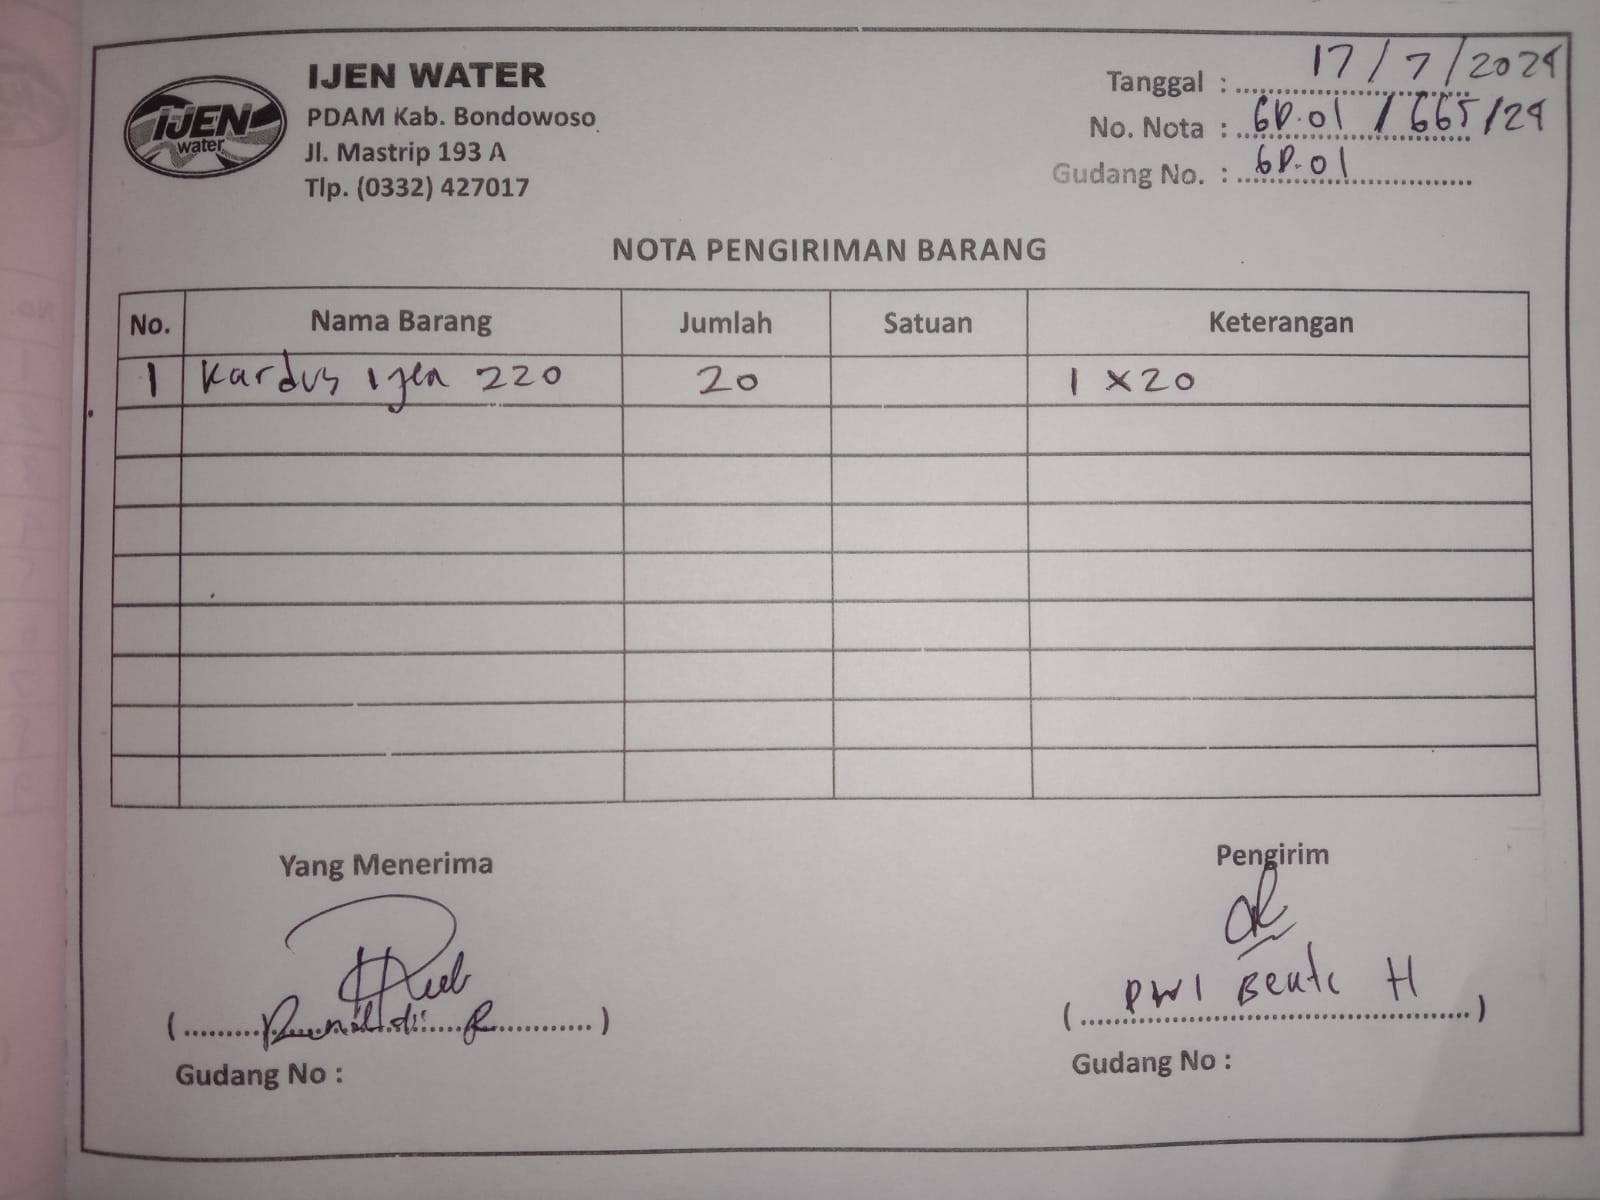 IJEN WATER
PDAM Kab. Bondowoso
Jl. Mastrip 193 A
Tlp. (0332) 427017
IJEN
water
Tanggal : 17/7/2024
No. Nota : GD.01 / 665/24
Gudang No. : GD.01
NOTA PENGIRIMAN BARANG
No. Nama Barang Jumlah Satuan Keterangan
1 Kardus Ijen 220 20 1 x 20
Yang Menerima Pengirim
( R ) ( DWI H )
Gudang No : Gudang No :